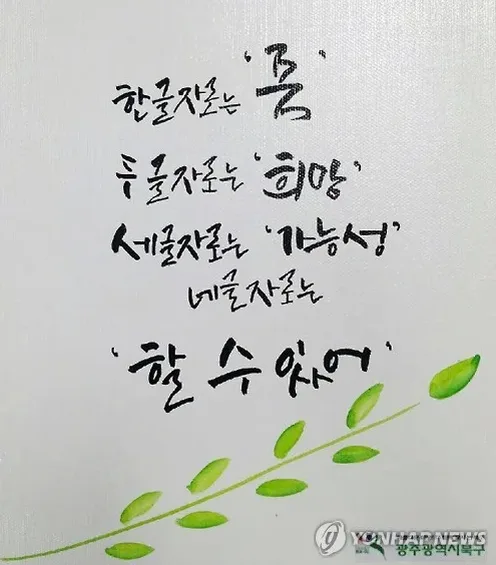 한글자로는 '꿈'
두글자로는 '희망'
세글자로는 '가능성'
네글자로는
'할 수 있어'
YONHAPNEWS
광주광역시북구